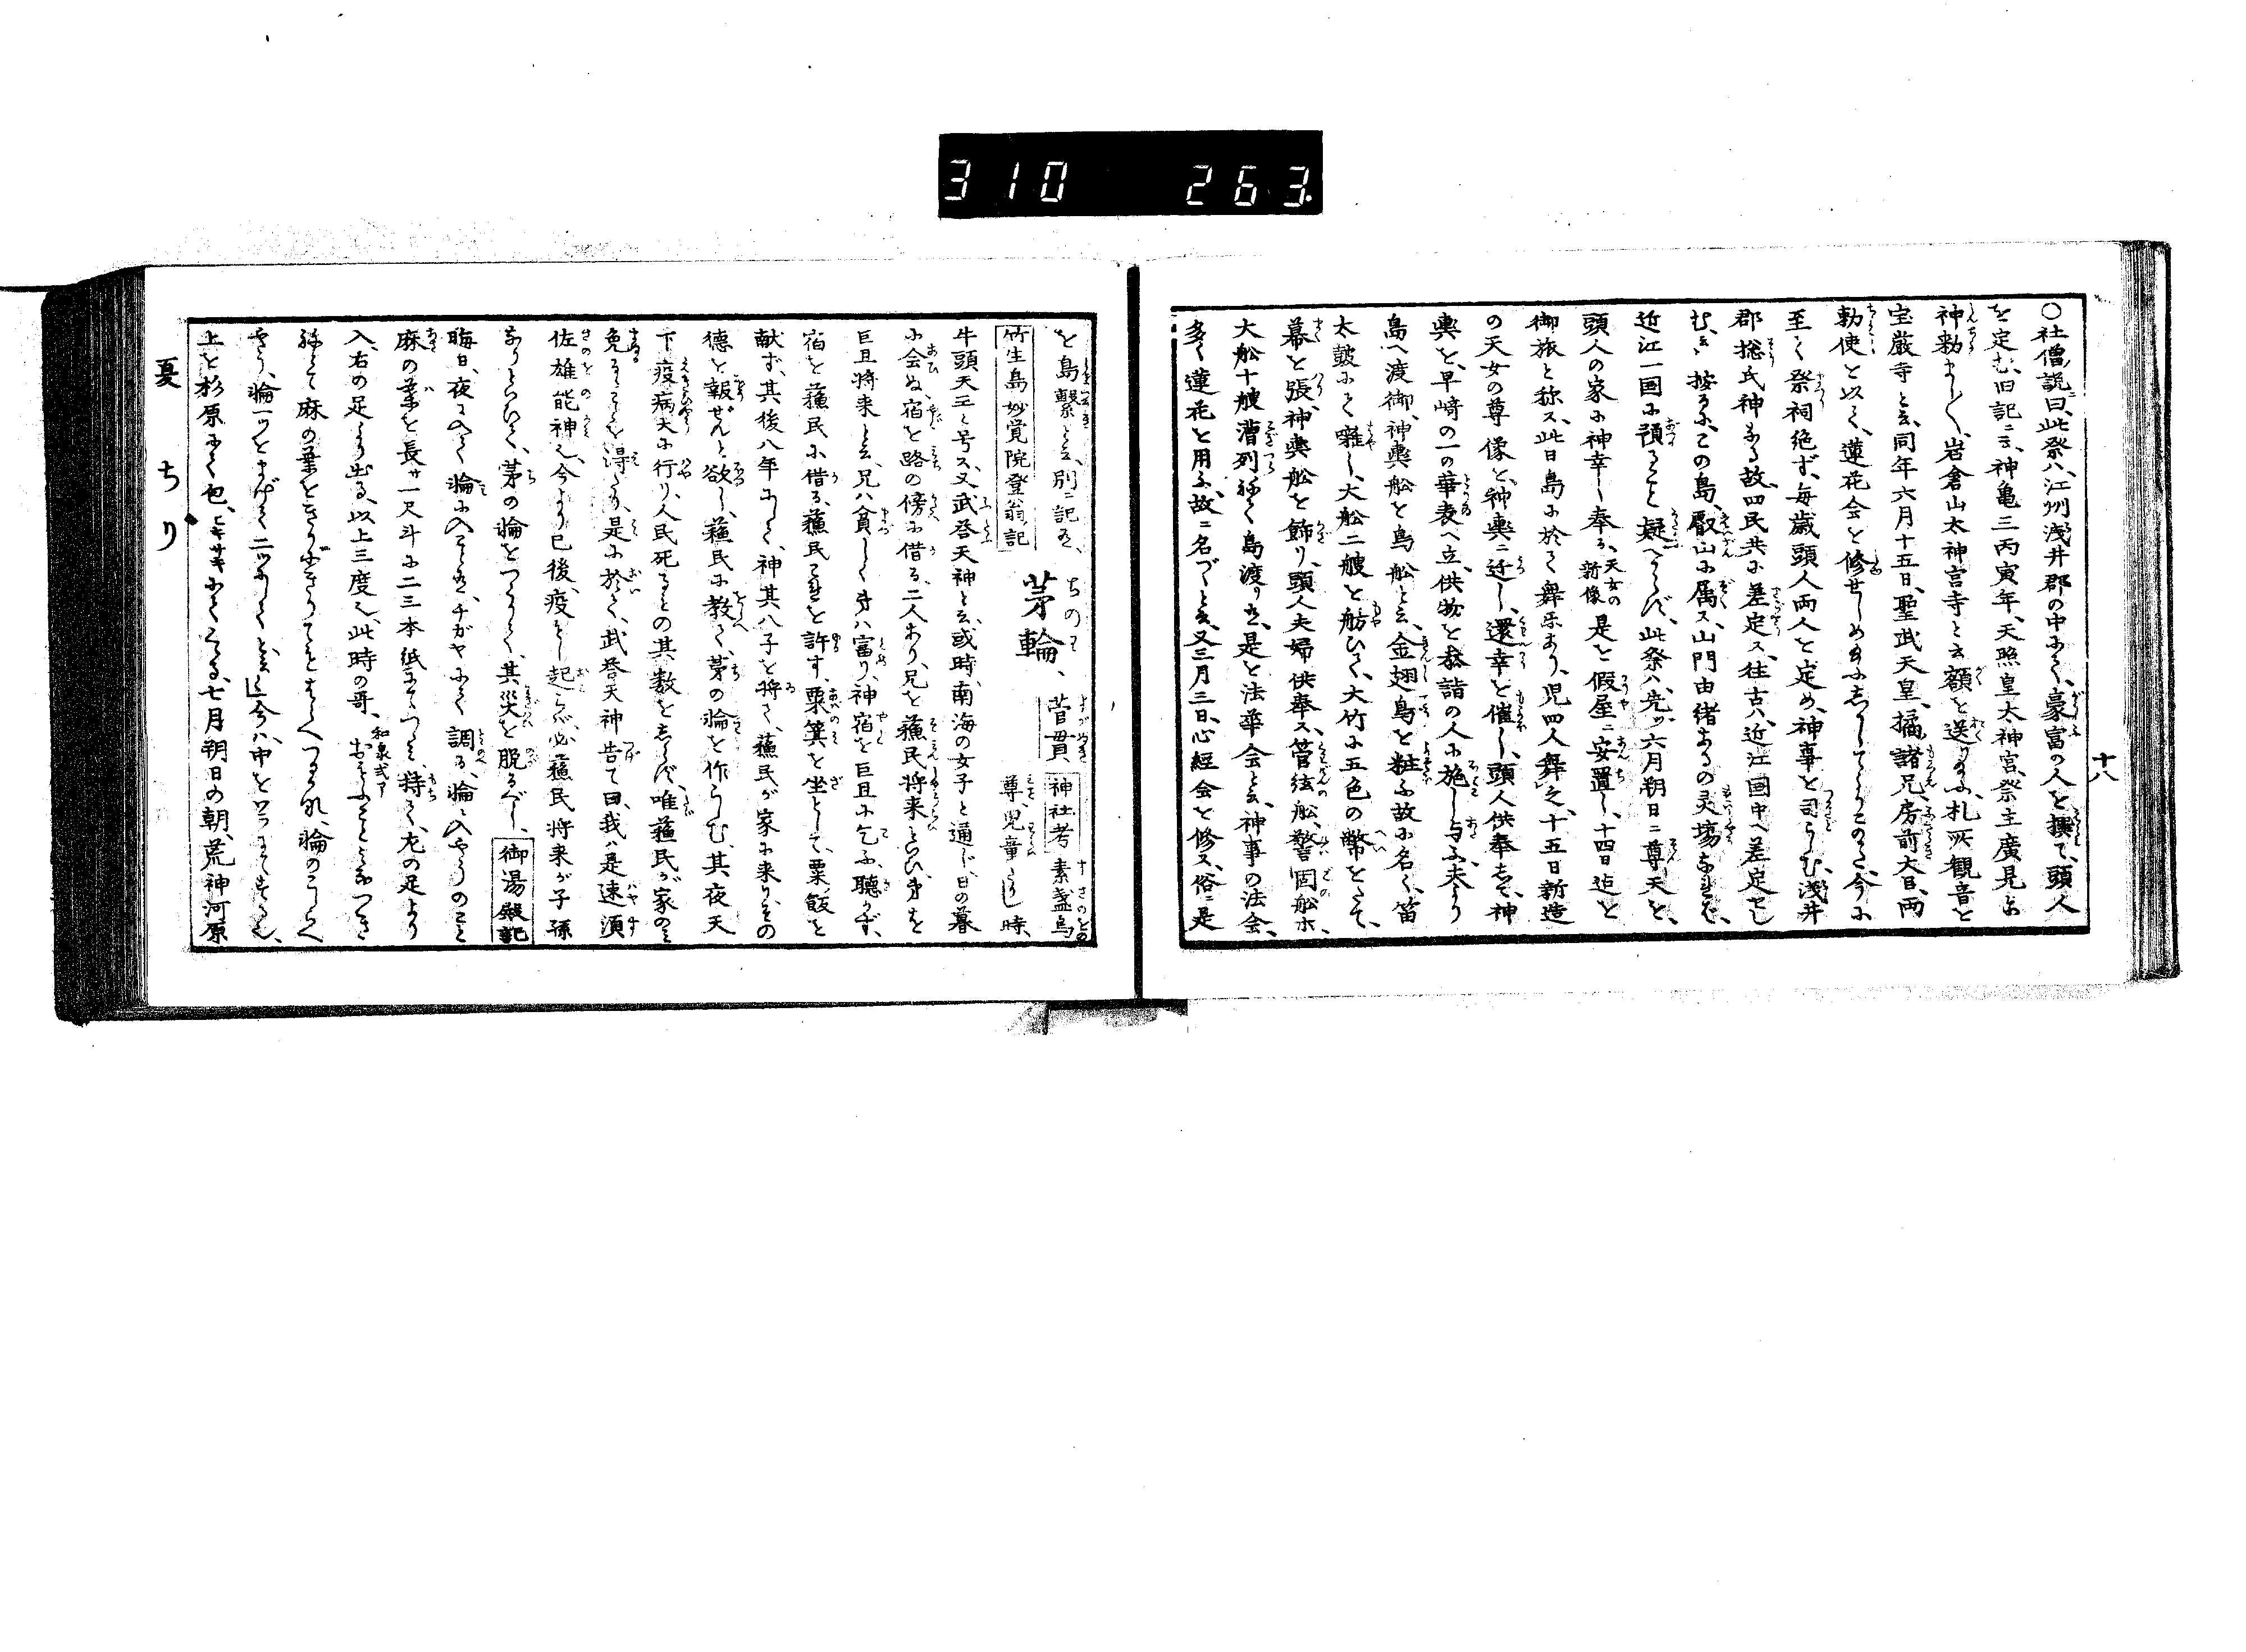 310 263.
十八
○社僧説曰、此祭ハ、江州浅井郡の中にて、豪富の人を撰て、頭人
を定む、旧記ニ云、神亀三丙寅年、天照皇太神宮、祭主廣見に
神勅ましく、岩倉山太神宮寺と云額を送り、札所観音と
宝厳寺と云、同年六月十五日、聖武天皇、橘諸兄、房前大臣、両
勅使を以て、蓮花会を修せしめ
至て祭祠絶ず、毎歳頭人両人を定め、神事を司らしむ、浅井
郡総氏神なる故、四民共に差定ス、往古ハ、近江国中へ差定せし
む、按るに、この島、叡山に属ス、山門由緒あるの灵場なれば、
近江一国に預ること疑べからず、此祭ハ、先ヅ六月朔日ニ尊天を、
頭人の家に神幸し奉る、天女の新像是を假屋ニ安置し、十四日迠を
御旅と称ス、此日島に於て舞楽あり、児四人舞之、十五日新造
の天女の尊像を、神輿ニ迁し、還幸を催し、頭人供奉して、神
輿を、早崎の一の華表へ立、供物を恭詣の人に施し与ふ、夫より
島へ渡御、神輿船を鳥船と云、金翅鳥を粧ふ故に名く、笛
太皷にて囃し、大船二艘を舫ひて、大竹に五色の幣をたて、
幕を張、神輿船を飾り、頭人夫婦供奉ス、管弦船、警固船ホ、
大船十艘漕列ねて島渡りす、是を法華会と云、神事の法会、
多く蓮花を用ふ、故ニ名づくと云、又三月三日、心経会を修ス、俗ニ是
を島繋と云、別ニ記す、
竹生島妙覚院登翁記
茅輪、
ちのわ
菅貫
すがぬき
神社考
素盞烏尊、児童たりし時、
牛頭天王と号ス、又武荅天神と云、或時、南海の女子と通じ、日の暮
に会ぬ、宿を路の傍に借る、二人あり、兄を蘓民将来といひ、弟を
巨旦将来と云、兄ハ貧しく弟ハ富り、神宿を巨旦に乞ふ、聴かず、
宿を蘓民に借る、蘓民これを許す、粟箕を坐として、粟飯を
献ず、其後八年にして、神其八子を将て、蘓民が家に来り、その
徳を報ぜんと欲し、蘓民に教て、茅の輪を作らしむ、其夜天
下疫病大に行り、人民死るもの其数をしらず、唯蘓民が家のミ
免るゝことを得たり、是に於て、武荅天神告て曰、我ハ是速須
佐雄能神也、今より已後、疫をし起らバ、必蘓民将来が子孫
なりといひて、茅の輪をつくりて、其災を脱るべし、御湯殿記
晦日、夜に入て輪に入ことは、チガヤにて調る、輪ニ入やうのこと
麻の葉を長サ一尺斗に二三本紙にてつゝミ、持て、左の足より
入、右の足より出る、以上三度也、此時の哥、和泉式アおもふことミなつき
ねとて麻の葉をきりにきりてもはらへつるかな、輪のこしらへ
やう、輪一ツをまげて二ツにしてと云々、今ハ、中を
上を杉原にて包、ヒキサキにて七月朔日の朝、荒神河原
夏 ちり